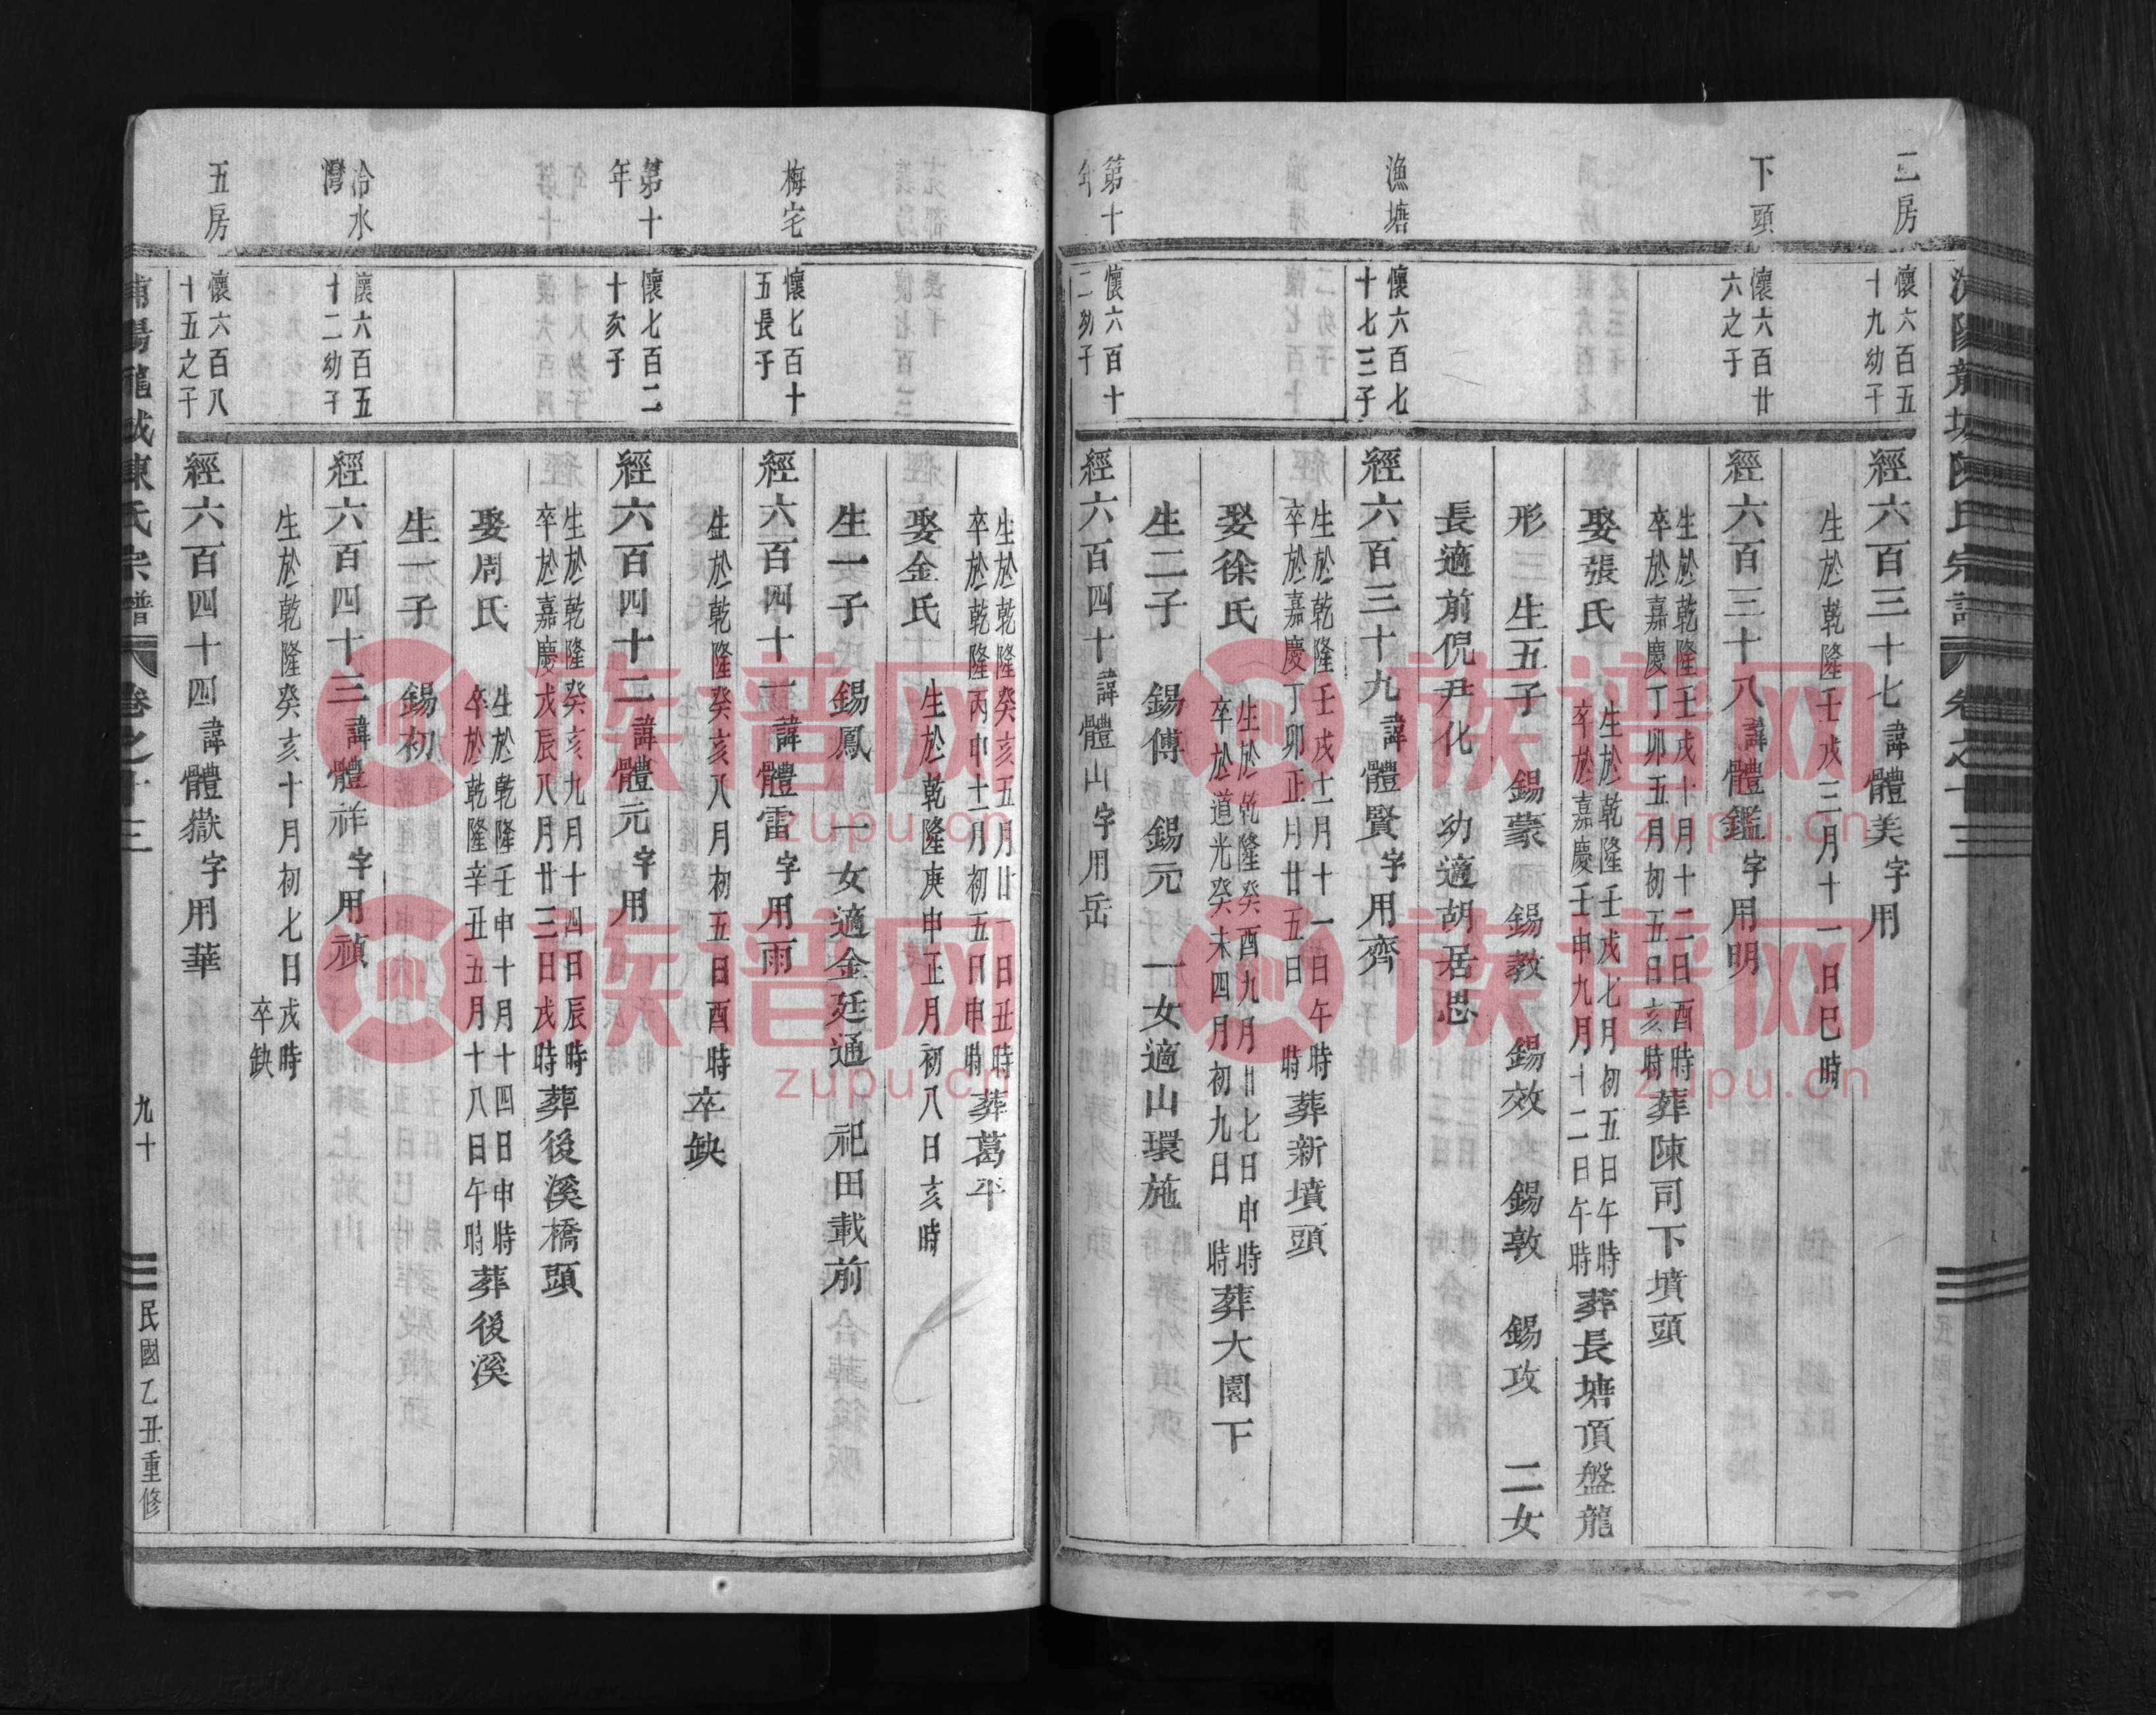 三房
懷六百五
十九幼子
經六百三十七諱體美字用
生於乾隆壬戌三月十一日巳時
下頭
懷六百廿
六之子
經六百三十八諱體鑑字用明
生於乾隆壬戌十月十二日酉時
卒於嘉慶丁卯五月初五日亥時葬陳司下墳頭
娶張氏
生於乾隆壬戌七月初五日午時
卒於嘉慶壬申九月十二日午時葬長塘頂盤龍
形 三生五子 錫蒙 錫教 錫效 錫敦 錫攻 二女
長適前倪尹化 幼適胡居思
漁塘
懷六百七
十七三子
經六百三十九諱體賢字用齊
生於乾隆壬戌十二月十一日午時
卒於嘉慶丁卯正月廿五日 時葬新墳頭
娶徐氏
生於乾隆癸酉九月廿七日申時
卒於道光癸未四月初九日 時葬大園下
生二子 錫傳 錫元 一女適山環施
第十
年
懷六百十
二幼子
經六百四十諱體山字用岳
生於乾隆癸亥五月廿一日丑時
卒於乾隆丙申十二月初五日申時 葬葛平
娶金氏 生於乾隆庚申正月初八日亥時
生一子 錫鳳 一女適金廷通 祀田載前
梅宅
懷七百十
五長子
經六百四十一諱體雷字用雨
生於乾隆癸亥八月初五日酉時卒缺
第十
年
懷七百二
十次子
經六百四十二諱體元字用
生於乾隆癸亥九月十四日辰時
卒於嘉慶戊辰八月廿三日戌時葬後溪橋頭
娶周氏
生於乾隆壬申十月十四日申時
卒於乾隆辛丑五月十八日午時葬後溪
生一子 錫初
冷水
灣
懷六百五
十二幼子
經六百四十三諱體祥字用禎
生於乾隆癸亥十月初七日戌時
卒缺
五房
懷六百八
十五之子
經六百四十四諱體嶽字用華
浦陽龍城陳氏宗譜 卷之十三 九十 民國乙丑重修
族谱网
zupu.cn
族谱网
zupu.cn
族谱网
zupu.cn
族谱网
zupu.cn